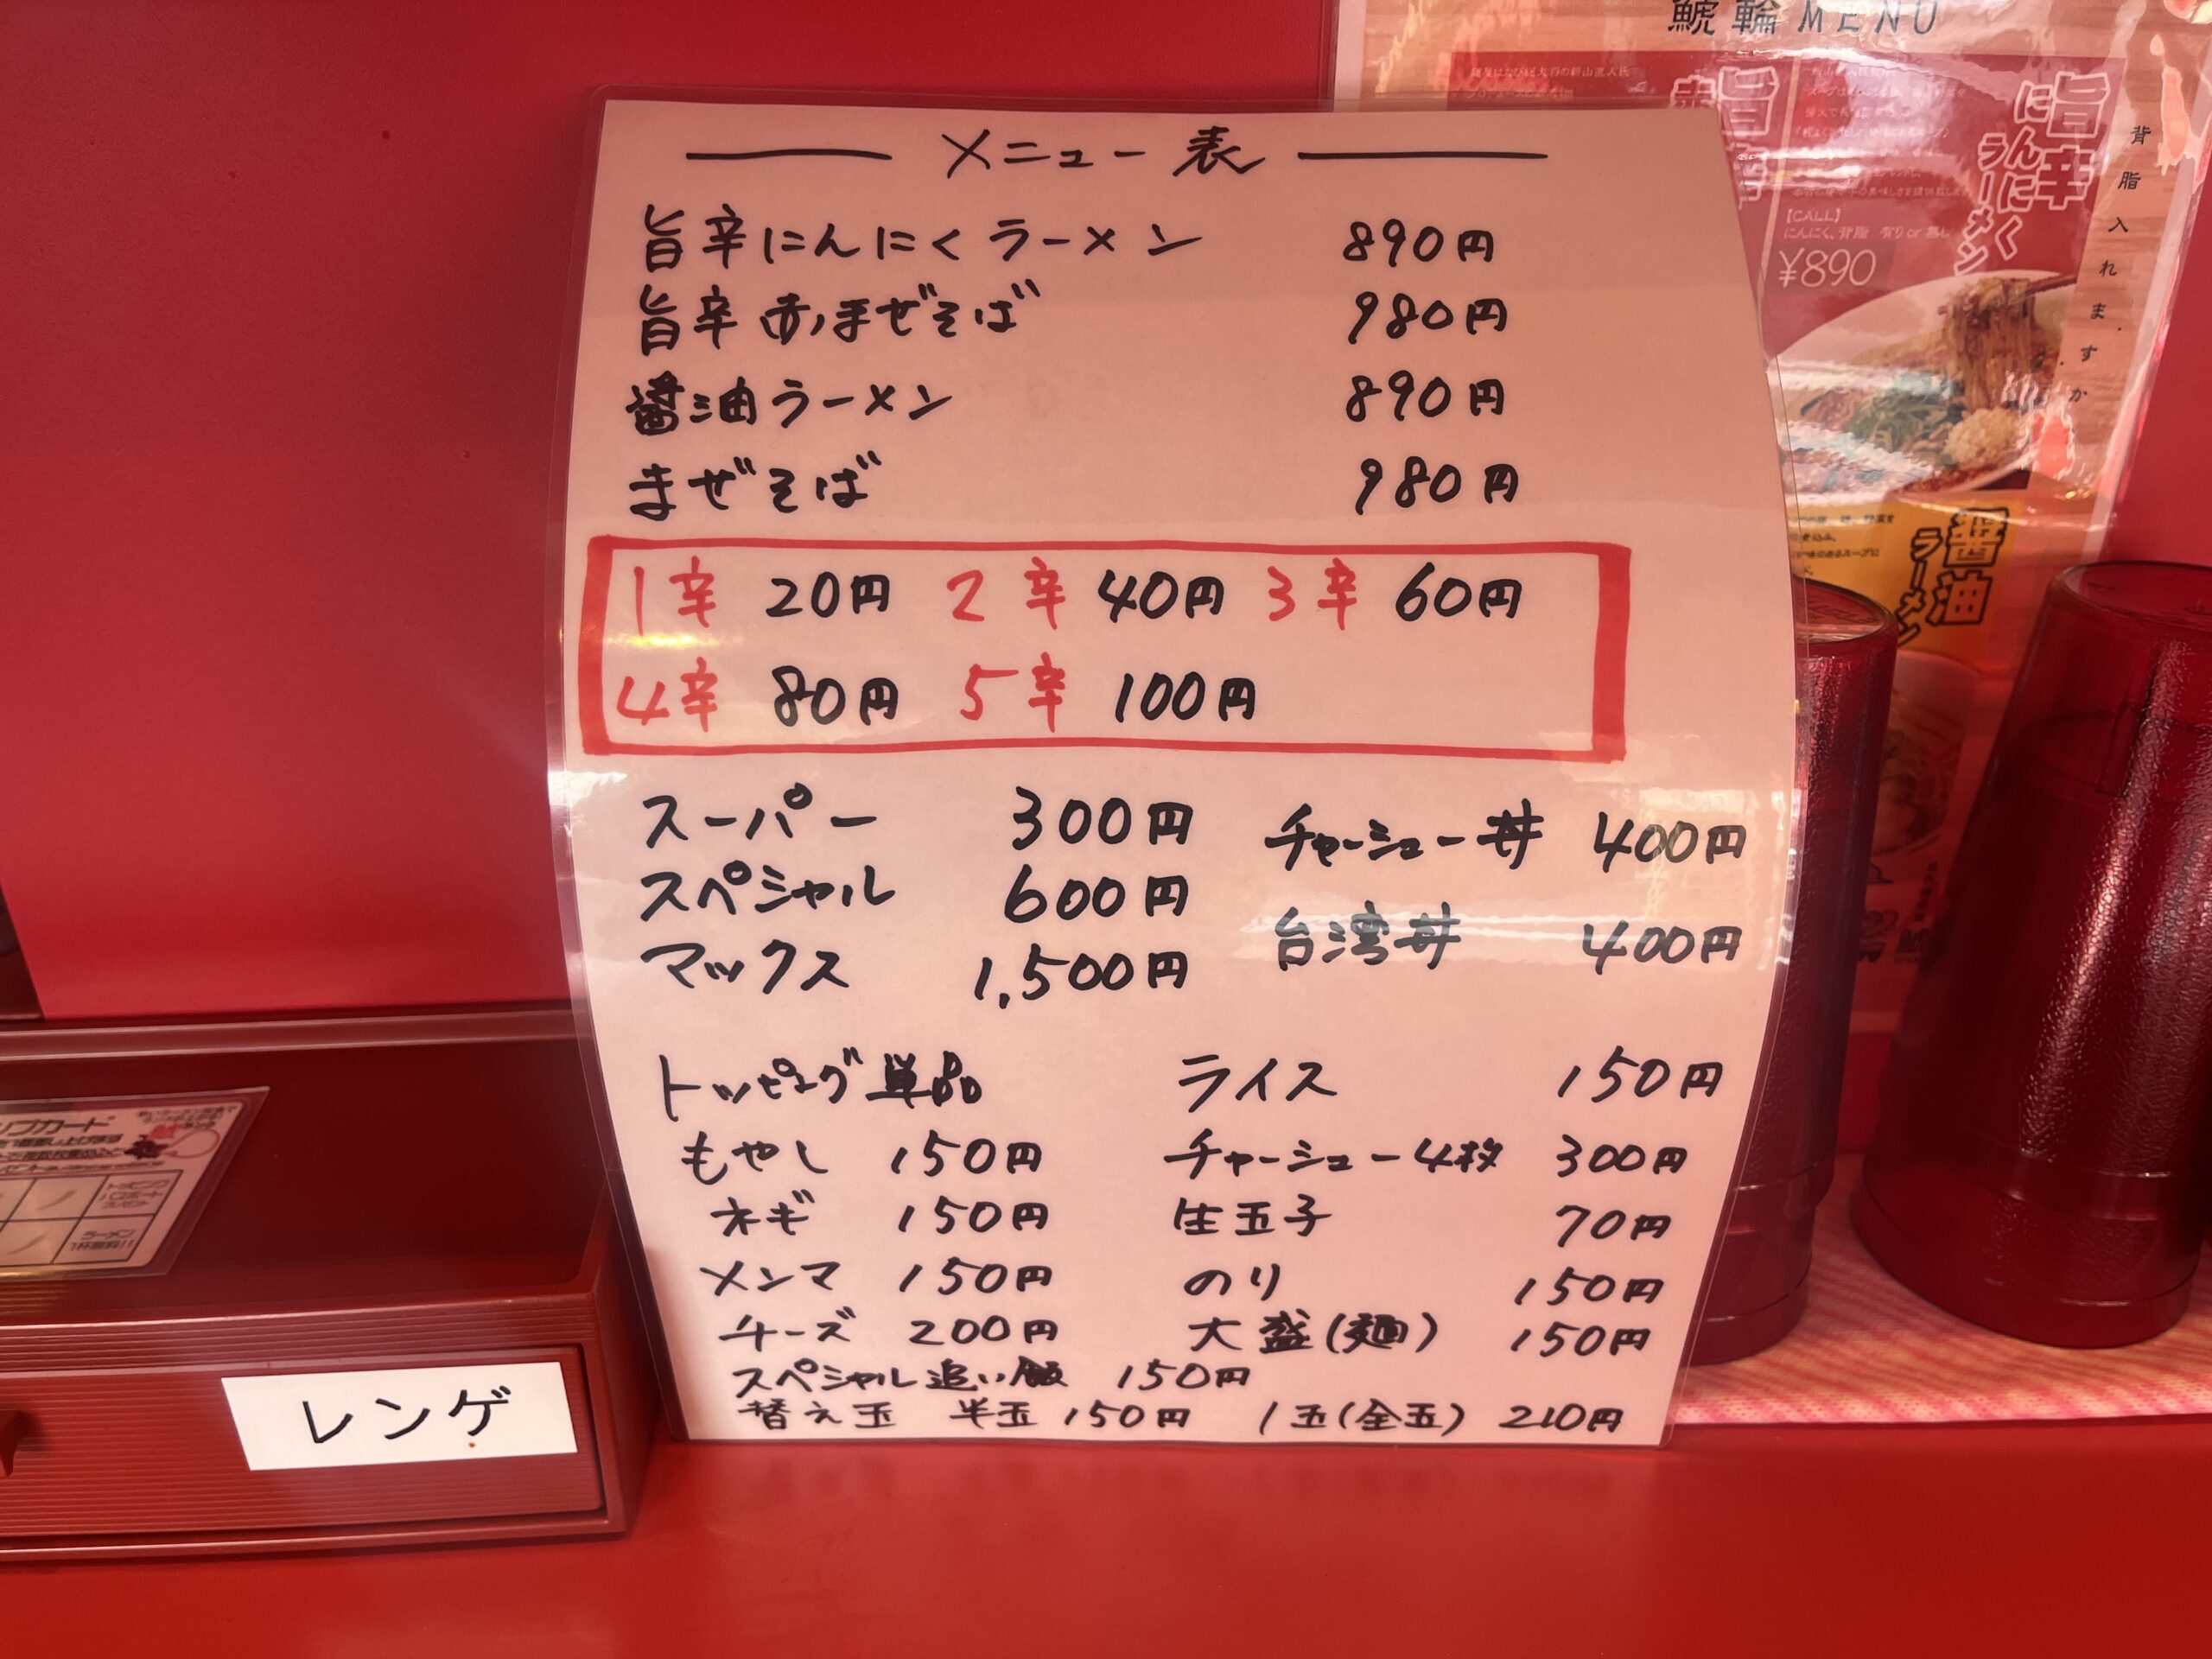 メニュー表
旨辛にんにくラーメン 890円
旨辛赤まぜそば 980円
醤油ラーメン 890円
まぜそば 980円
1辛 20円 2辛 40円 3辛 60円
4辛 80円 5辛 100円
スーパー 300円 チャーシュー丼 400円
スペシャル 600円 台湾丼 400円
マックス 1,500円
トッピング単品 ライス 150円
もやし 150円 チャーシュー4枚 300円
ネギ 150円 生玉子 70円
メンマ 150円 のり 150円
チーズ 200円 大盛(麺) 150円
スペシャル追い飯 150円
替え玉 半玉 150円 1玉(全玉) 210円
レンゲ
輪 MENU
旨辛
にんにく
ラーメン
【CALL】
にんにく、背脂 有り or 無し
¥890
背脂入れますか
醤油
ラーメン
ラーメン
1杯無料!!